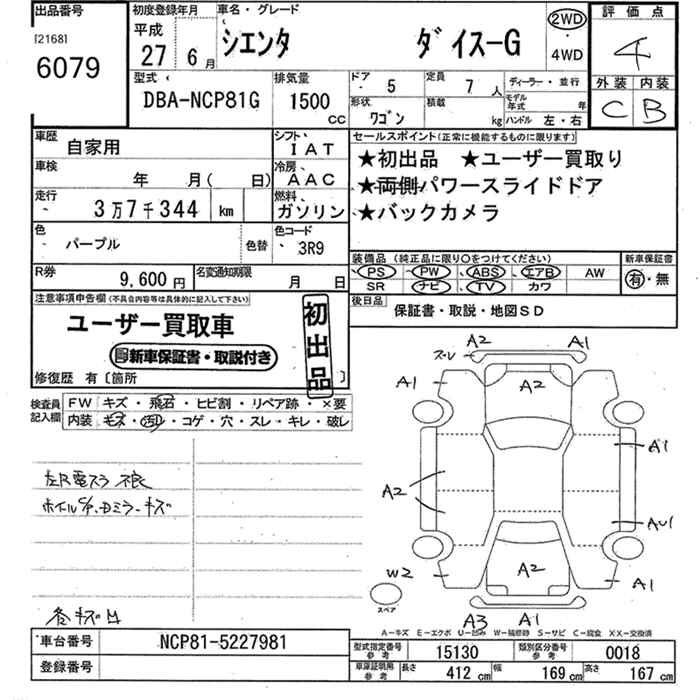 出品番号 初度登録年月 車名・グレード 評価点
[2168]
6079
平成
27 6月 シエンタ ダイスーG 2WD・4WD 4
型式 排気量 ドア 5 定員 7人 ディーラー・並行 外装 内装
DBA-NCP81G 1500 CC 形状 ワゴン 積載 kg モデル年式 年 ハンドル 左・右 C B
車歴 自家用 シフト IAT セールスポイント(正常に機能するものに限ります)
車検 年 月( 日) 冷房 AAC ★初出品 ★ユーザー買取り
走行 3万7千344 km 燃料 ガソリン ★両側パワースライドドア
★バックカメラ
色 パープル 色替 色コード 3R9
装備品(純正品に限り〇をつけてください) 新車保証書
PS PW ABS エアB AW 有・無
SR ナビ TV カワ
R券 9,600円 名変通知期限 月 日
後日品 保証書・取説・地図SD
注意事項申告欄(不具合内容等は具体的に記入して下さい)
ユーザー買取車 初出品
新車保証書・取説付き
修復歴 有〔箇所 〕
検査員記入欄 FW キズ・飛石・ヒビ割・リペア跡・×要
内装 キズ・汚れ・コゲ・穴・スレ・キレ・破レ
左R電スラ不良
ホイルC/P、Dミラーキズ
各キズ凹
A2 A1
スレ
A1 A2 A1
A1
A2
AU1
W2 A2 A1
スペア
A3 A1
A-キズ E-エクボ U-凹み W-補修跡 S-サビ C-腐食 XX-交換済
車台番号 NCP81-5227981 型式指定番号 参考 15130 類別区分番号 参考 0018
登録番号 車庫証明用 参考 長さ 412 cm 幅 169 cm 高さ 167 cm